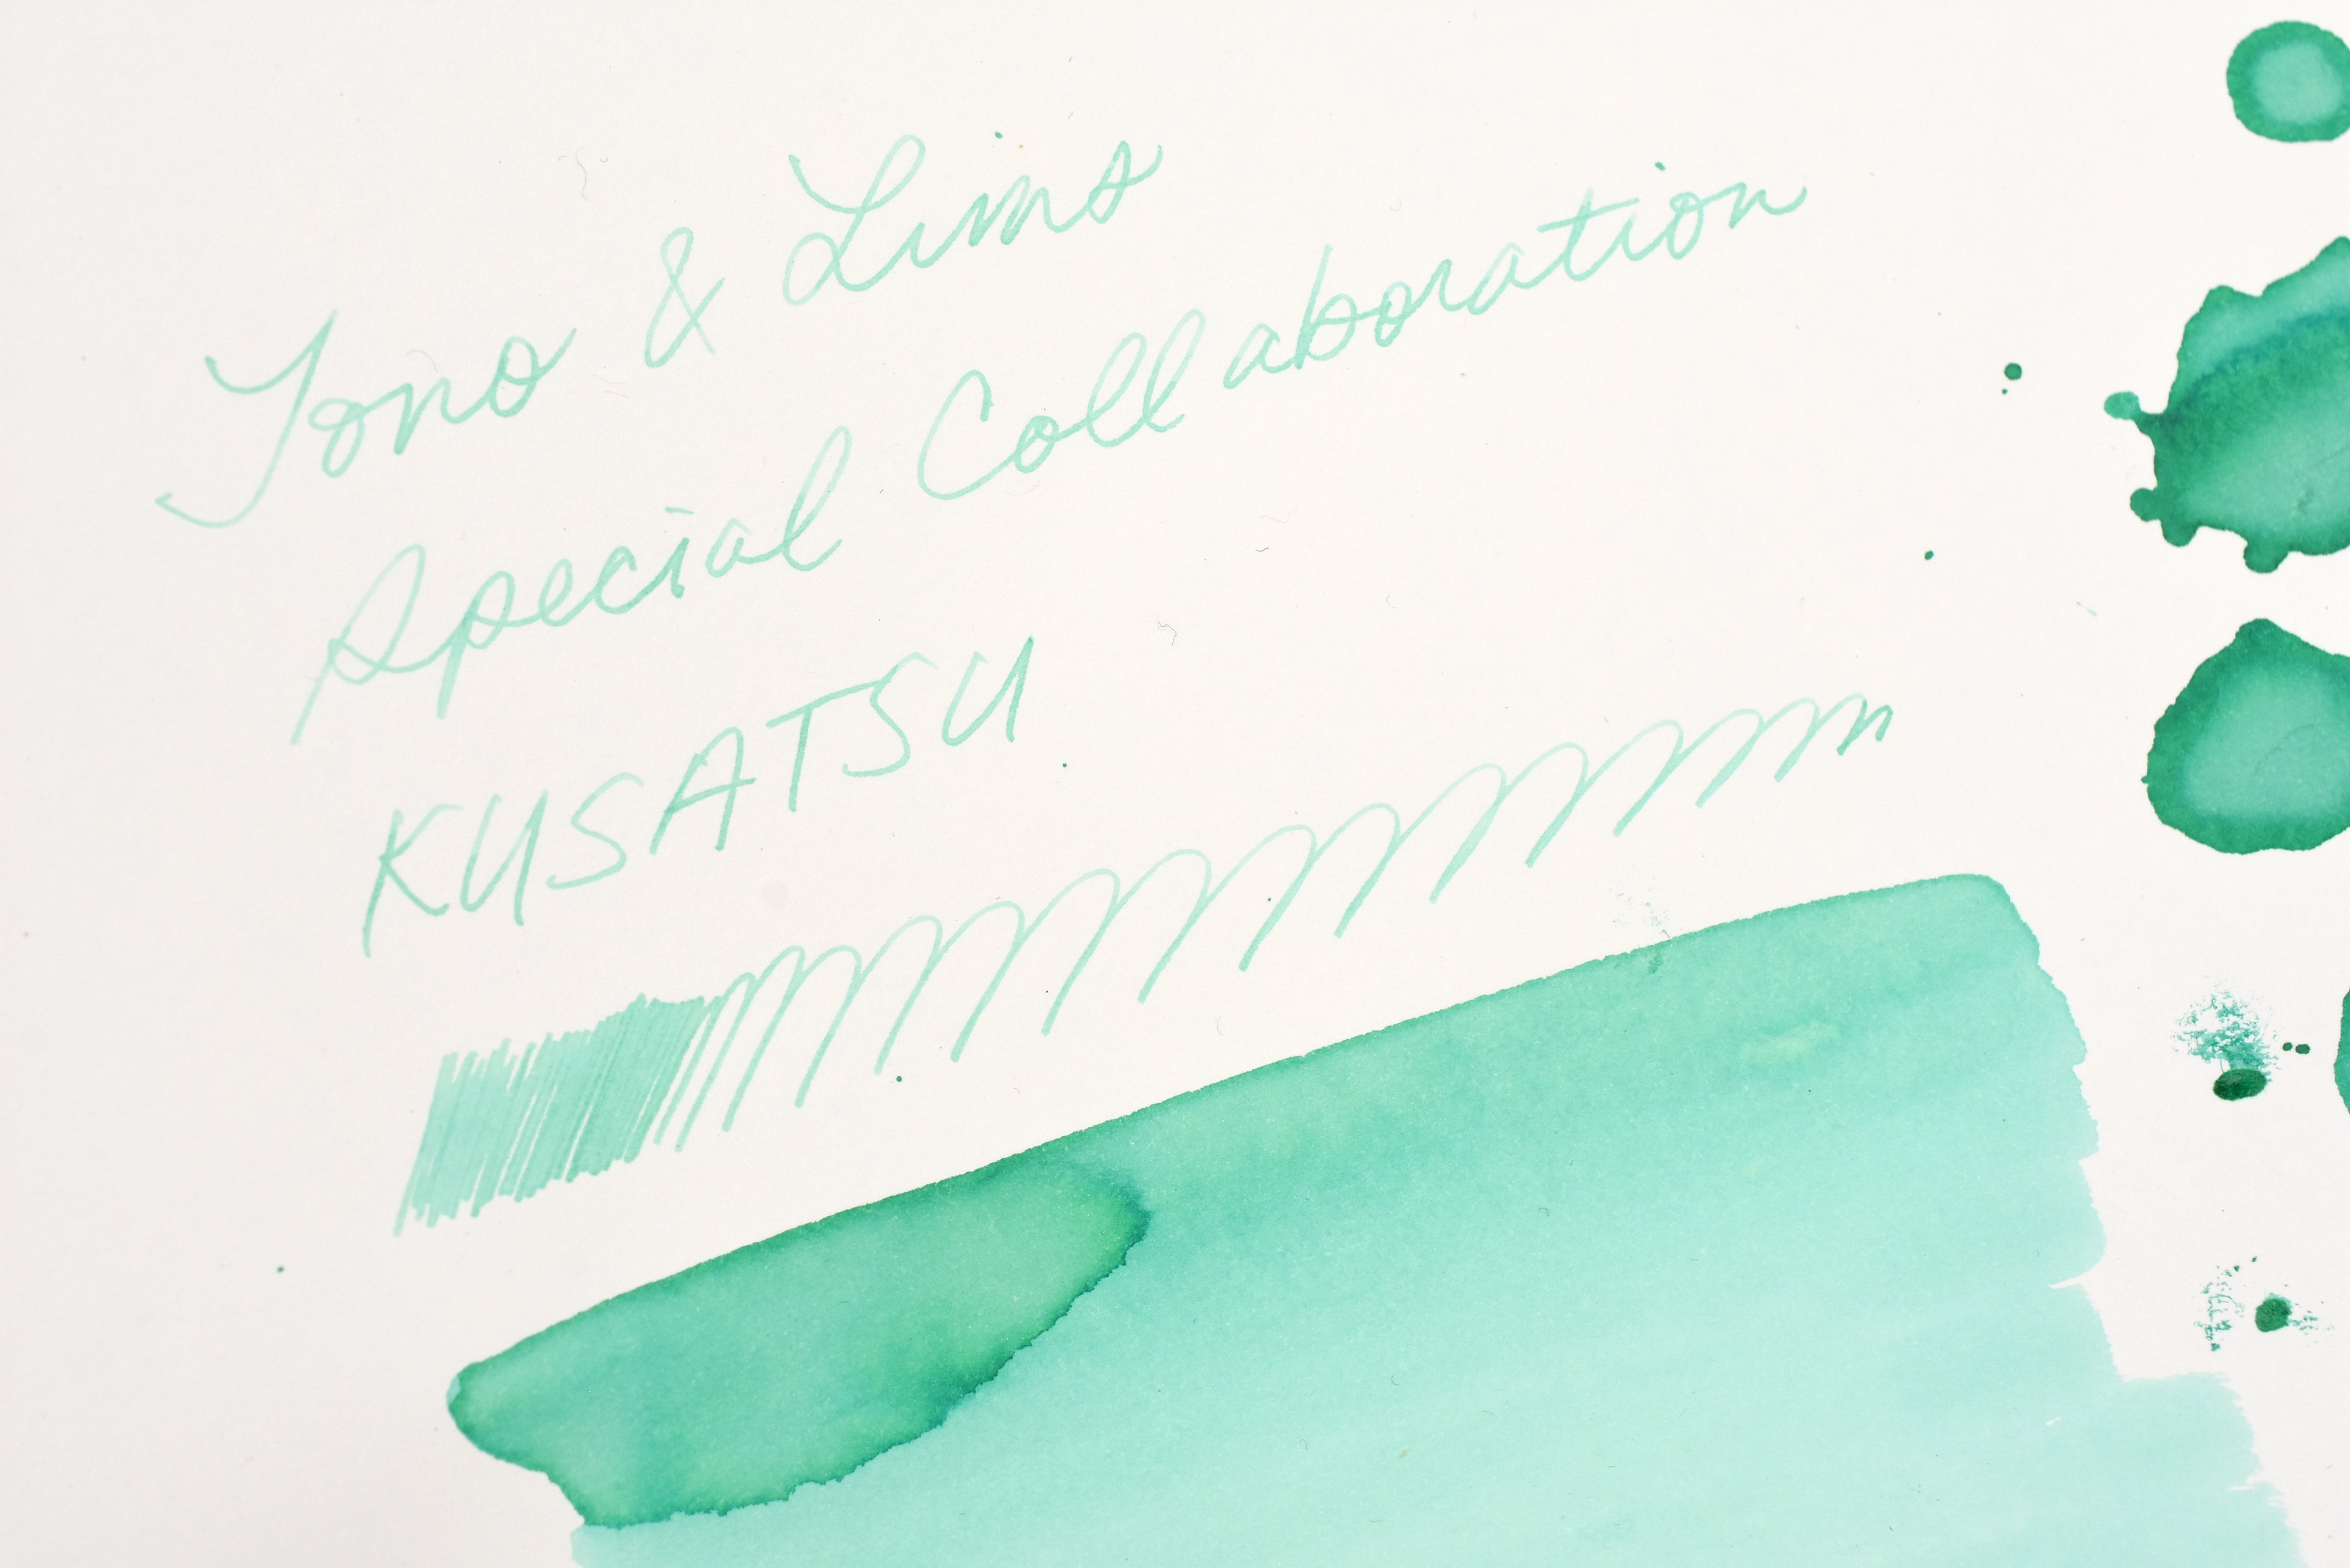 Tono & Lims
Special Collaboration
KUSATSU